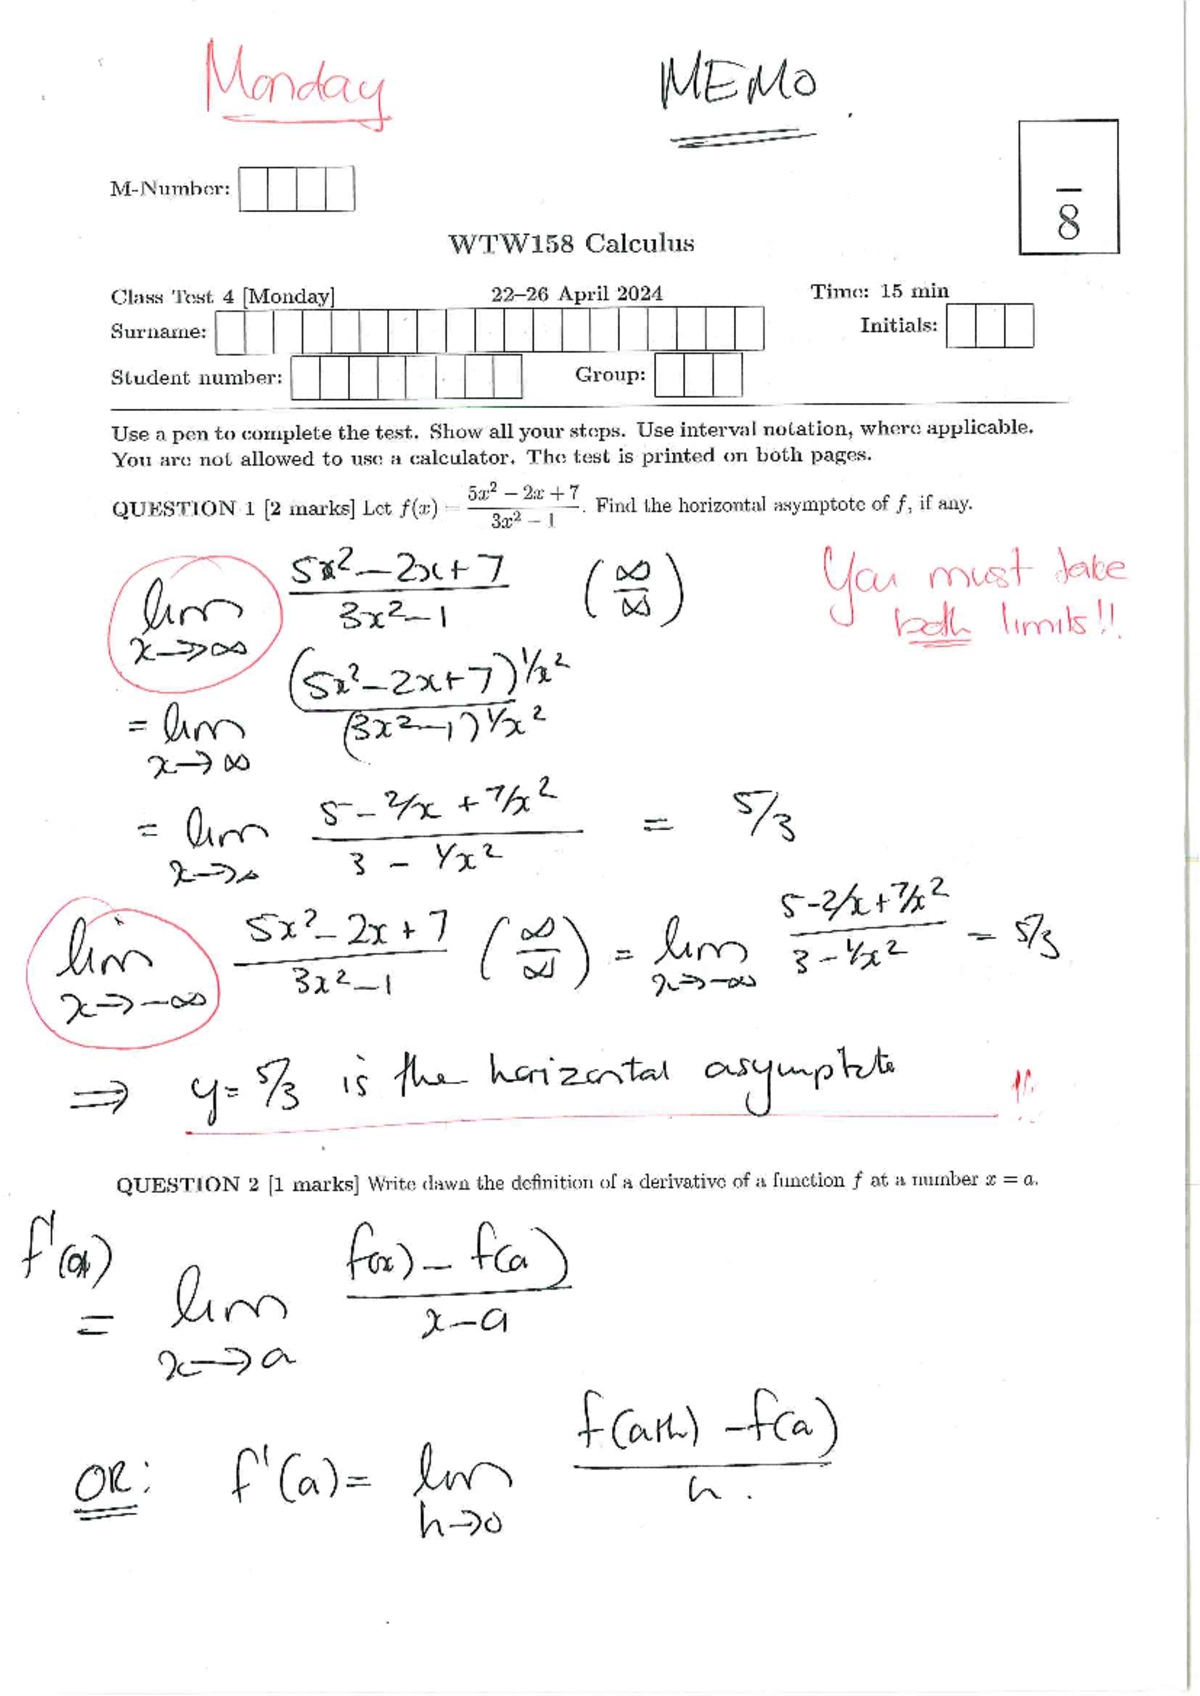 Monday
MEMO
M-Number:
8
WTW158 Calculus
Class Test 4 [Monday] 22–26 April 2024 Time: 15 min
Surname: Initials:
Student number: Group:
Use a pen to complete the test. Show all your steps. Use interval notation, where applicable.
You are not allowed to use a calculator. The test is printed on both pages.
QUESTION 1 [2 marks] Let f(x) = (5x² − 2x + 7)/(3x² − 1). Find the horizontal asymptote of f, if any.
lim x→∞ (5x² − 2x + 7)/(3x² − 1) (∞/∞)
You must take
both limits!!
= lim x→∞ (5x² − 2x + 7) 1/x² / (3x² − 1) 1/x²
= lim x→∞ (5 − 2/x + 7/x²)/(3 − 1/x²) = 5/3
lim x→−∞ (5x² − 2x + 7)/(3x² − 1) (∞/∞) = lim x→−∞ (5 − 2/x + 7/x²)/(3 − 1/x²) = 5/3
⇒ y = 5/3 is the horizontal asymptote !!
QUESTION 2 [1 marks] Write dawn the definition of a derivative of a function f at a number x = a.
f'(a)
= lim x→a (f(x) − f(a))/(x − a)
OR: f'(a) = lim h→0 (f(a+h) − f(a))/h.